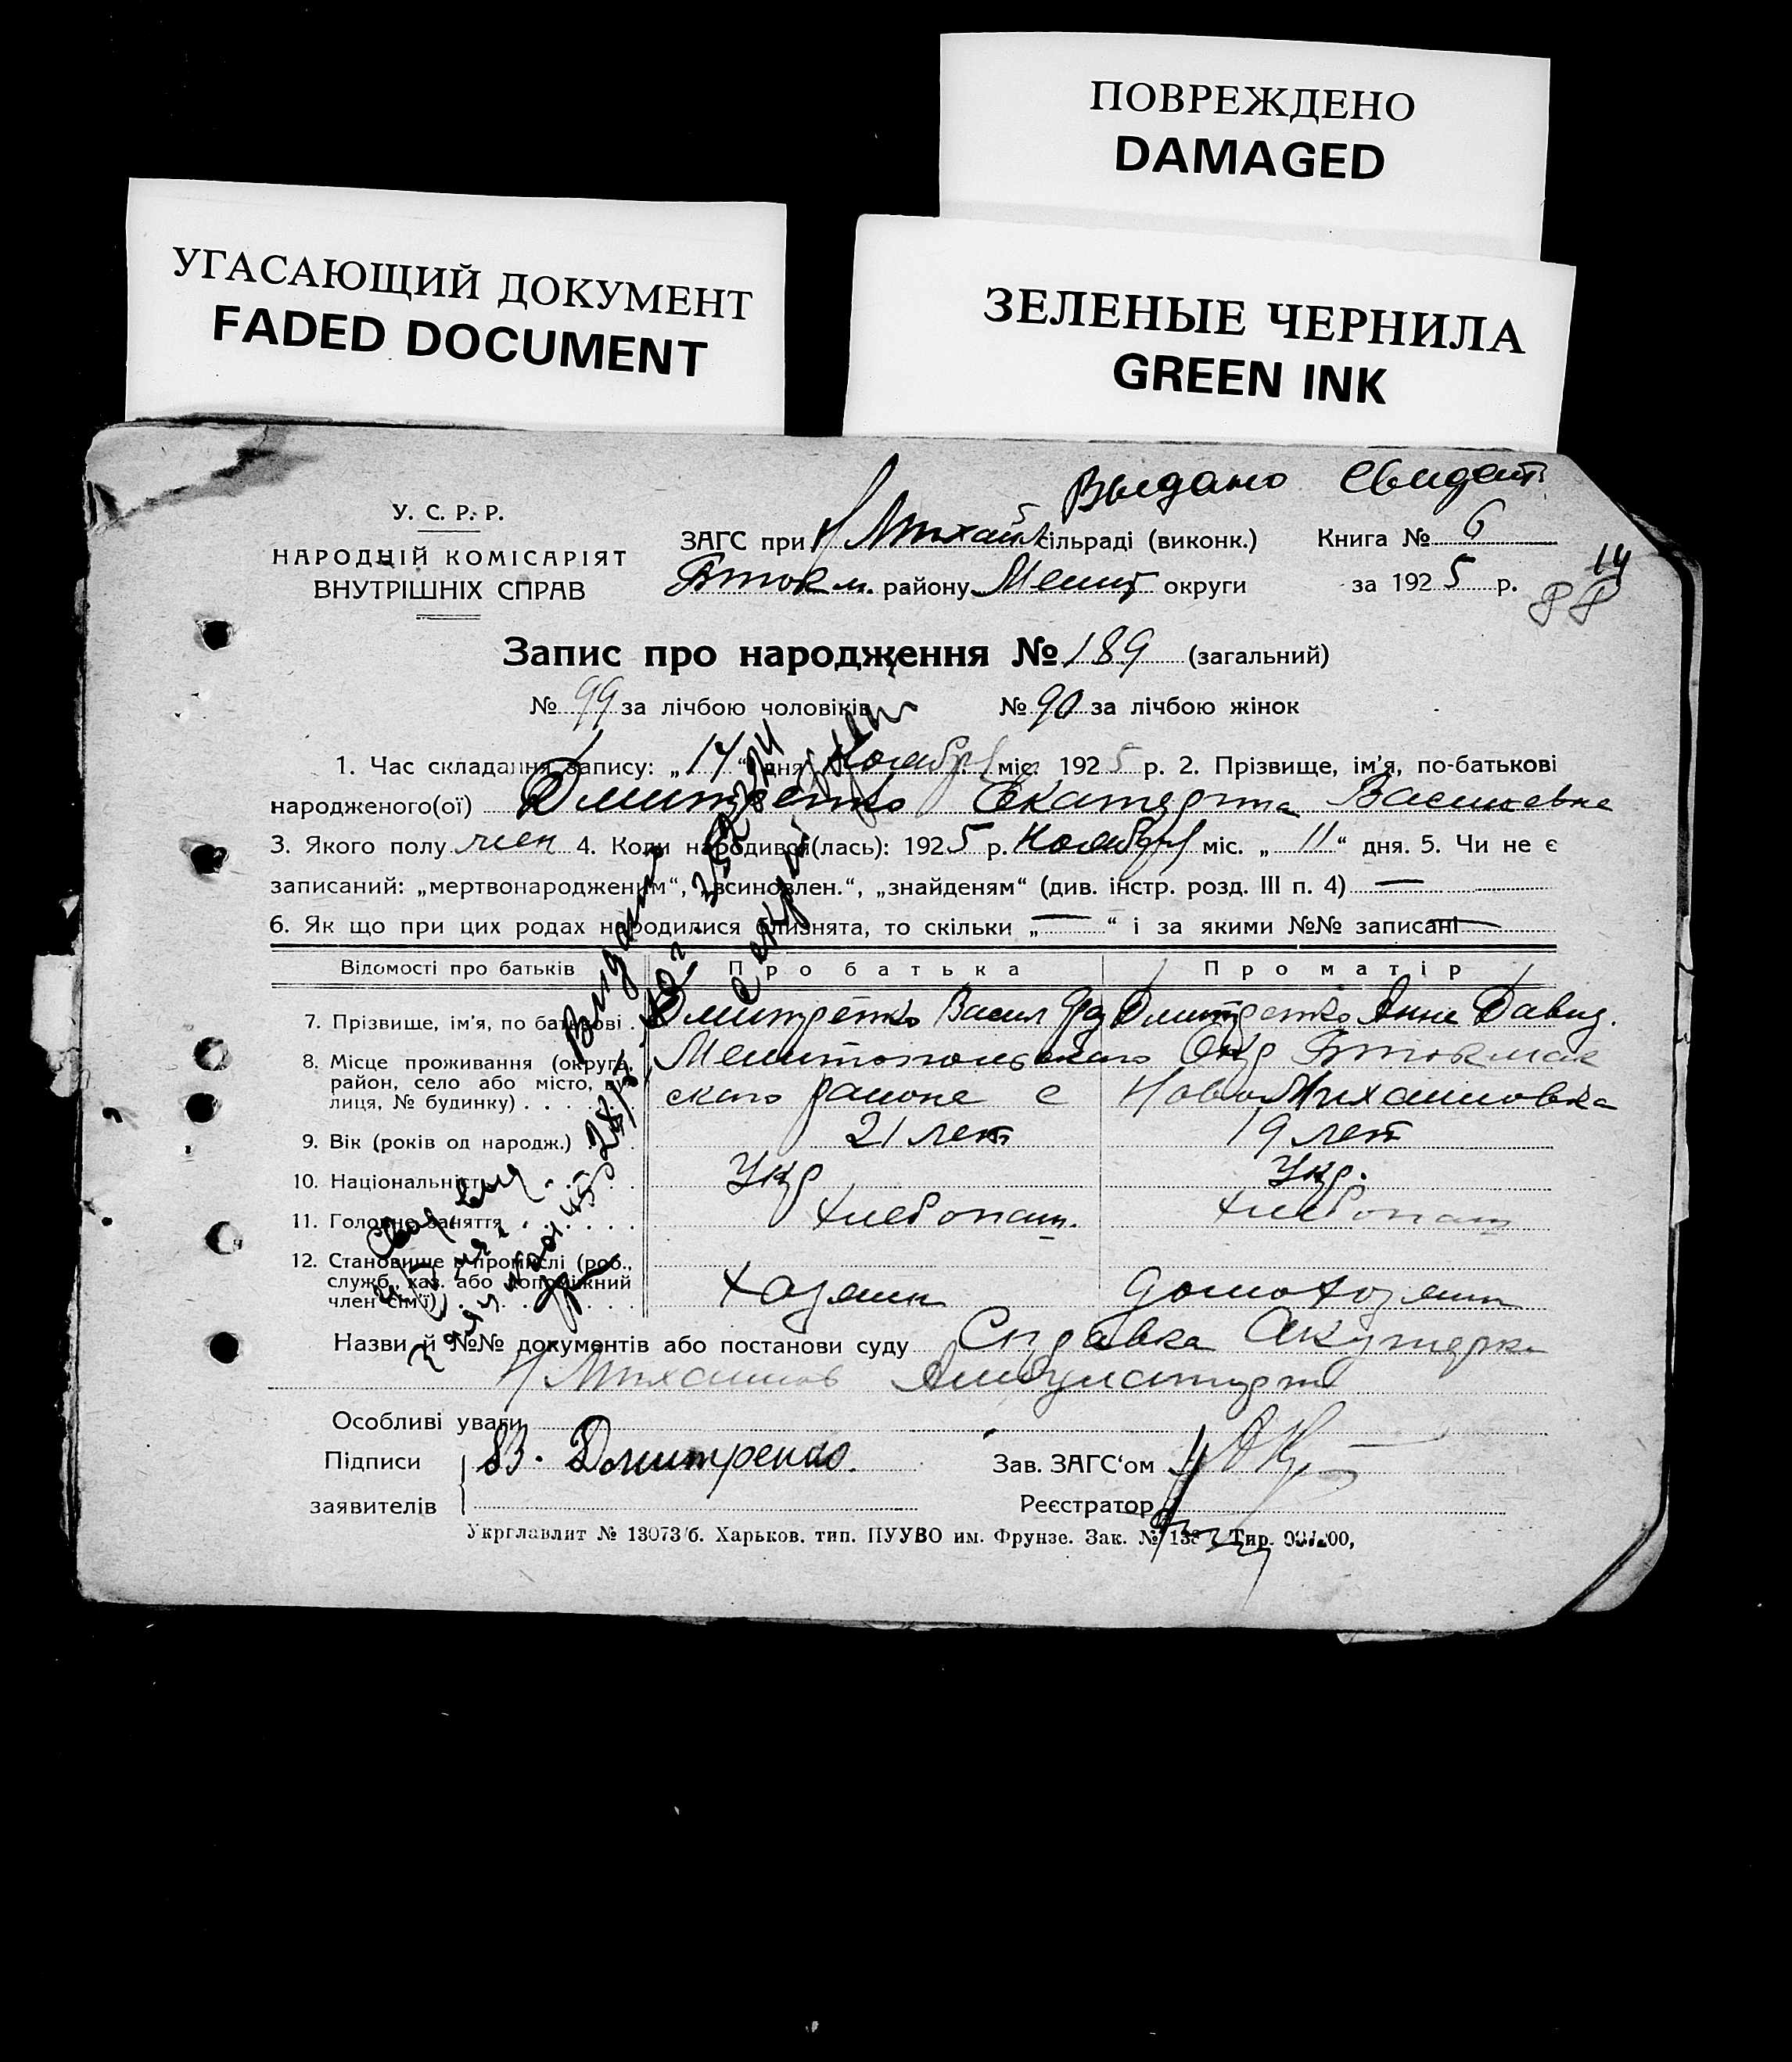 ПОВРЕЖДЕНО
DAMAGED
УГАСАЮЩИЙ ДОКУМЕНТ
FADED DOCUMENT
ЗЕЛЕНЫЕ ЧЕРНИЛА
GREEN INK
Выдано Свидет.
У. С. Р. Р.
НАРОДНІЙ КОМІСАРІЯТ
ВНУТРІШНІХ СПРАВ
ЗАГС при Н Михайл сільраді (виконк.) Книга № 6
Бток м. району Мелит округи за 1925 р.
14
88
Запис про народження № 189 (загальний)
№ 99 за лічбою чоловіків № 90 за лічбою жінок
1. Час складання запису: „14“ дня Ноября міс. 1925 р. 2. Прізвище, ім’я, по-батькові
народженого(ої) Дмитренко Екатерина Васильевна
3. Якого полу жен 4. Коли народився(лась): 1925 р. Ноября міс. „11“ дня. 5. Чи не є
записаний: „мертвонародженим“, „всиновлен.“, „знайденям“ (див. інстр. розд. III п. 4) —
6. Як що при цих родах народилися близнята, то скільки „—“ і за якими №№ записані —
Відомості про батьків Про батька Про матір
7. Прізвише, ім’я, по батькові Дмитренко Васил Дмитренко Анна Давид.
8. Місце проживання (округа, район, село або місто, вулиця, № будинку) Мелитопольского Окр Бтокмак
ского района с Ново Михайловка
9. Вік (років од народж.) 21 лет 19 лет
10. Національність Укр Укр.
11. Головне заняття Хлебопаш. Хлебопаш
12. Становище в промислі (роб., служб., хаз. або допоміжний член сім’ї) Хозяин домохозяин
Назви й №№ документів або постанови суду Справка Акушерки
Н Михайлов Амбулатории
Особливі уваги
Підписи заявителів В. Дмитренко. Зав. ЗАГС‘ом
Реєстратор
Укрглавлит № 13073/б. Харьков. тип. ПУУВО им. Фрунзе. Зак. № Тир.
Выдано